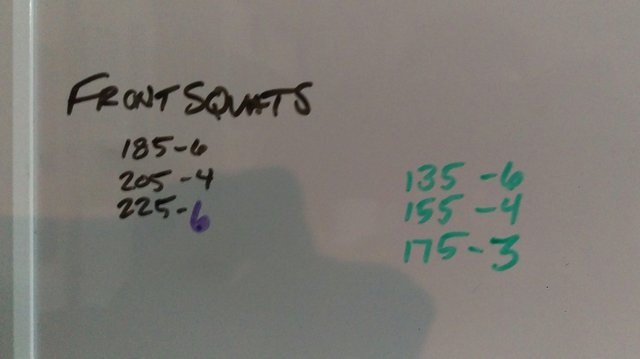 FRONT SQUATS
185-6
205-4
225-6
135-6
155-4
175-3